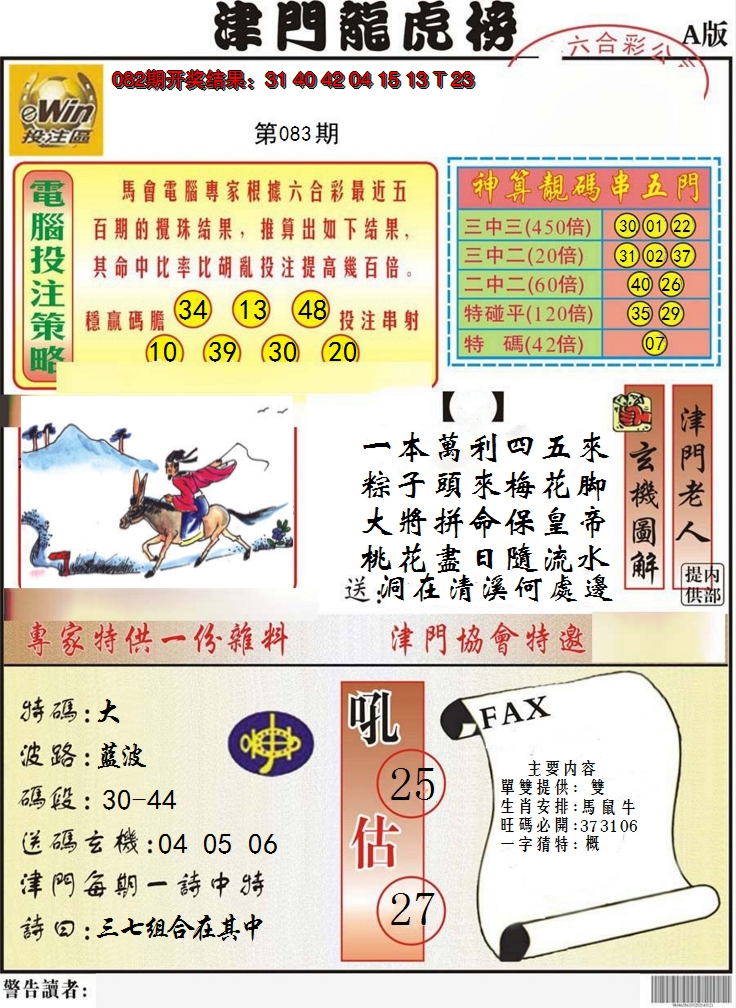 津門龍虎榜
A版
六合彩公
eWin
投注區
082期开奖结果：31 40 42 04 15 13 T 23
第083期
電腦投注策略
馬會電腦專家根據六合彩最近五
百期的攪珠结果，推算出如下结果，
其命中比率比胡亂投注提高幾百倍。
穩赢碼膽 34 13 48 投注串射
10 39 30 20
神算靚碼串五門
三中三(450倍) 30 01 22
三中二(20倍) 31 02 37
二中二(60倍) 40 26
特碰平(120倍) 35 29
特 碼(42倍) 07
【 】
一本萬利四五來
粽子頭來梅花脚
大將拼命保皇帝
桃花盡日隨流水
送:洞在清溪何處邊
玄機圖解
津門老人
内部提供
專家特供一份雜料
津門協會特邀
特碼:大
波路:藍波
碼段:30-44
送碼玄機:04 05 06
津門每期一詩中特
詩曰:三七组合在其中
吼
25
估
27
FAX
主要内容
單雙提供：雙
生肖安排:馬鼠牛
旺碼必開:373106
一字猜特：概
警告讀者: